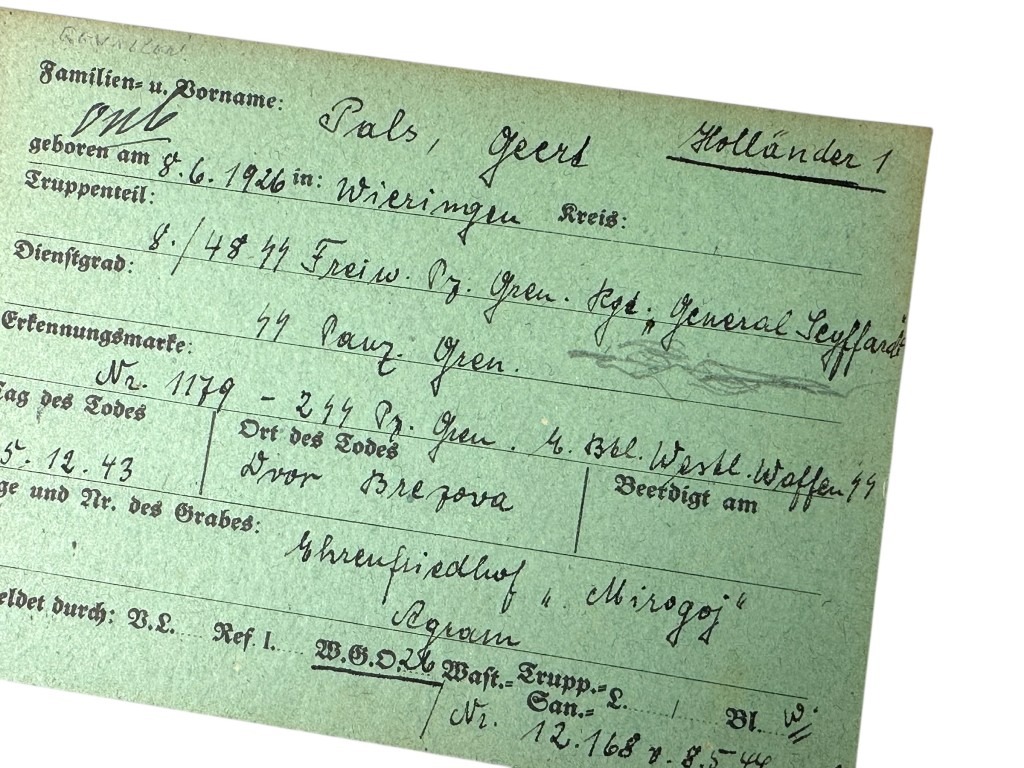 Familien- u. Vorname: Pals, Geert Holländer 1
geboren am 8.6.1926 in: Wieringen Kreis:
Truppenteil: 8./48 ϟϟ Freiw. Pz. Gren. Rgt. „General Seyffardt
Dienstgrad: ϟϟ Panz. Gren.
Erkennungsmarke: Nr. 1179 - 2 ϟϟ Pz. Gren. E. Btl. Westl. Waffen ϟϟ
Tag des Todes Ort des Todes Beerdigt am
5.12.43 Dvor Brezova
ge und Nr. des Grabes: Ehrenfriedhof „Mirogoj"
Agram
eldet durch: V.L. Ref. I. W.G.O. 26 Wast.- Trupp.- L. Bl. W.
San.-
Nr. 12.168 v. 8.5 44